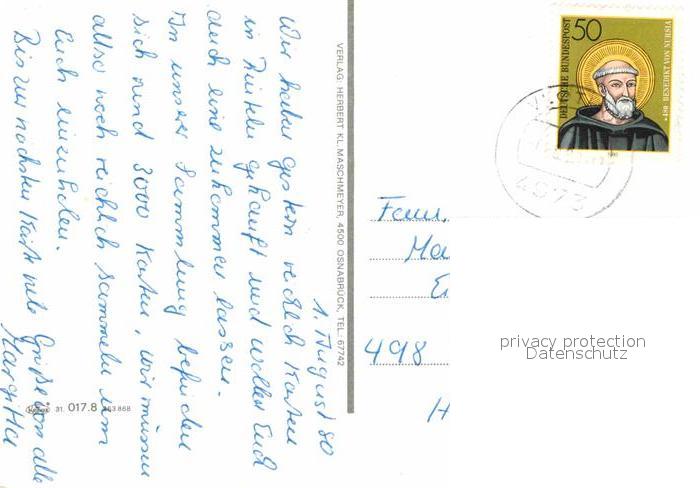 1. August 80
Wir haben gestern reichlich Karten
in Rinteln gekauft und wollen Euch
auch eine zukommen lassen.
In unser Sammlung befinden
sich rund 3000 Karten, wir müssen
also noch reichlich sammeln um
Euch einzuholen.
Bis zur nächsten Karte viele Grüße von alle
Margitta
VERLAG: HERBERT KL. MASCHMEYER, 4500 OSNABRÜCK, TEL. 67742
31. 017.8
DEUTSCHE BUNDESPOST
50
*480 BENEDIKT VON NURSIA
4973
Fam.
Ma
E
498
H
privacy protection
Datenschutz